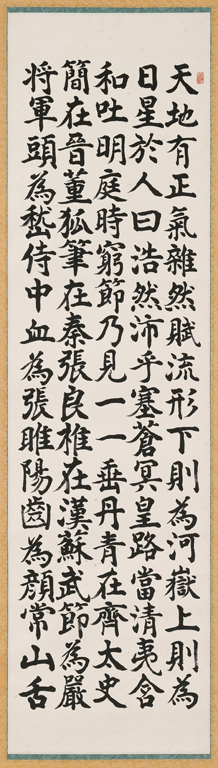 天地有正氣雜然賦流形下則為河嶽上則為
日星於人曰浩然沛乎塞蒼冥皇路當清夷含
和吐明庭時窮節乃見一一垂丹青在齊太史
簡在晉董狐筆在秦張良椎在漢蘇武節為嚴
将軍頭為嵇侍中血為張睢陽齒為顏常山舌